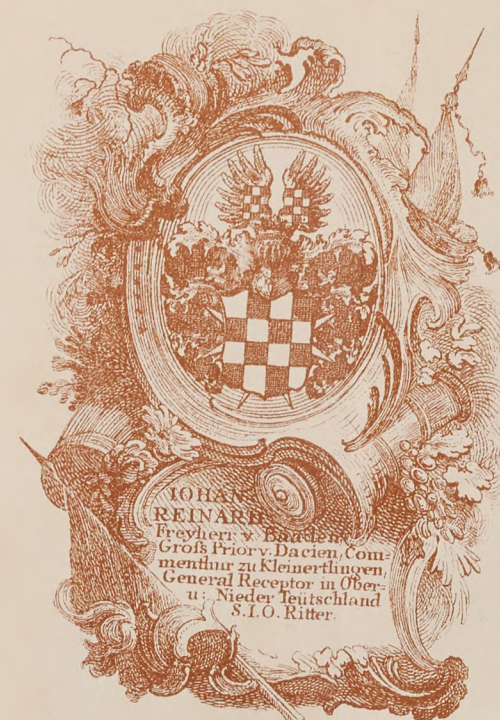 IOHAN
REINARD
Freyherr v. Baaden
Groſs Prior v. Dacien, Com=
menthur zu Kleinertlingen,
General Receptor in Ober=
u: Nieder Teütschland
S. I. O. Ritter.